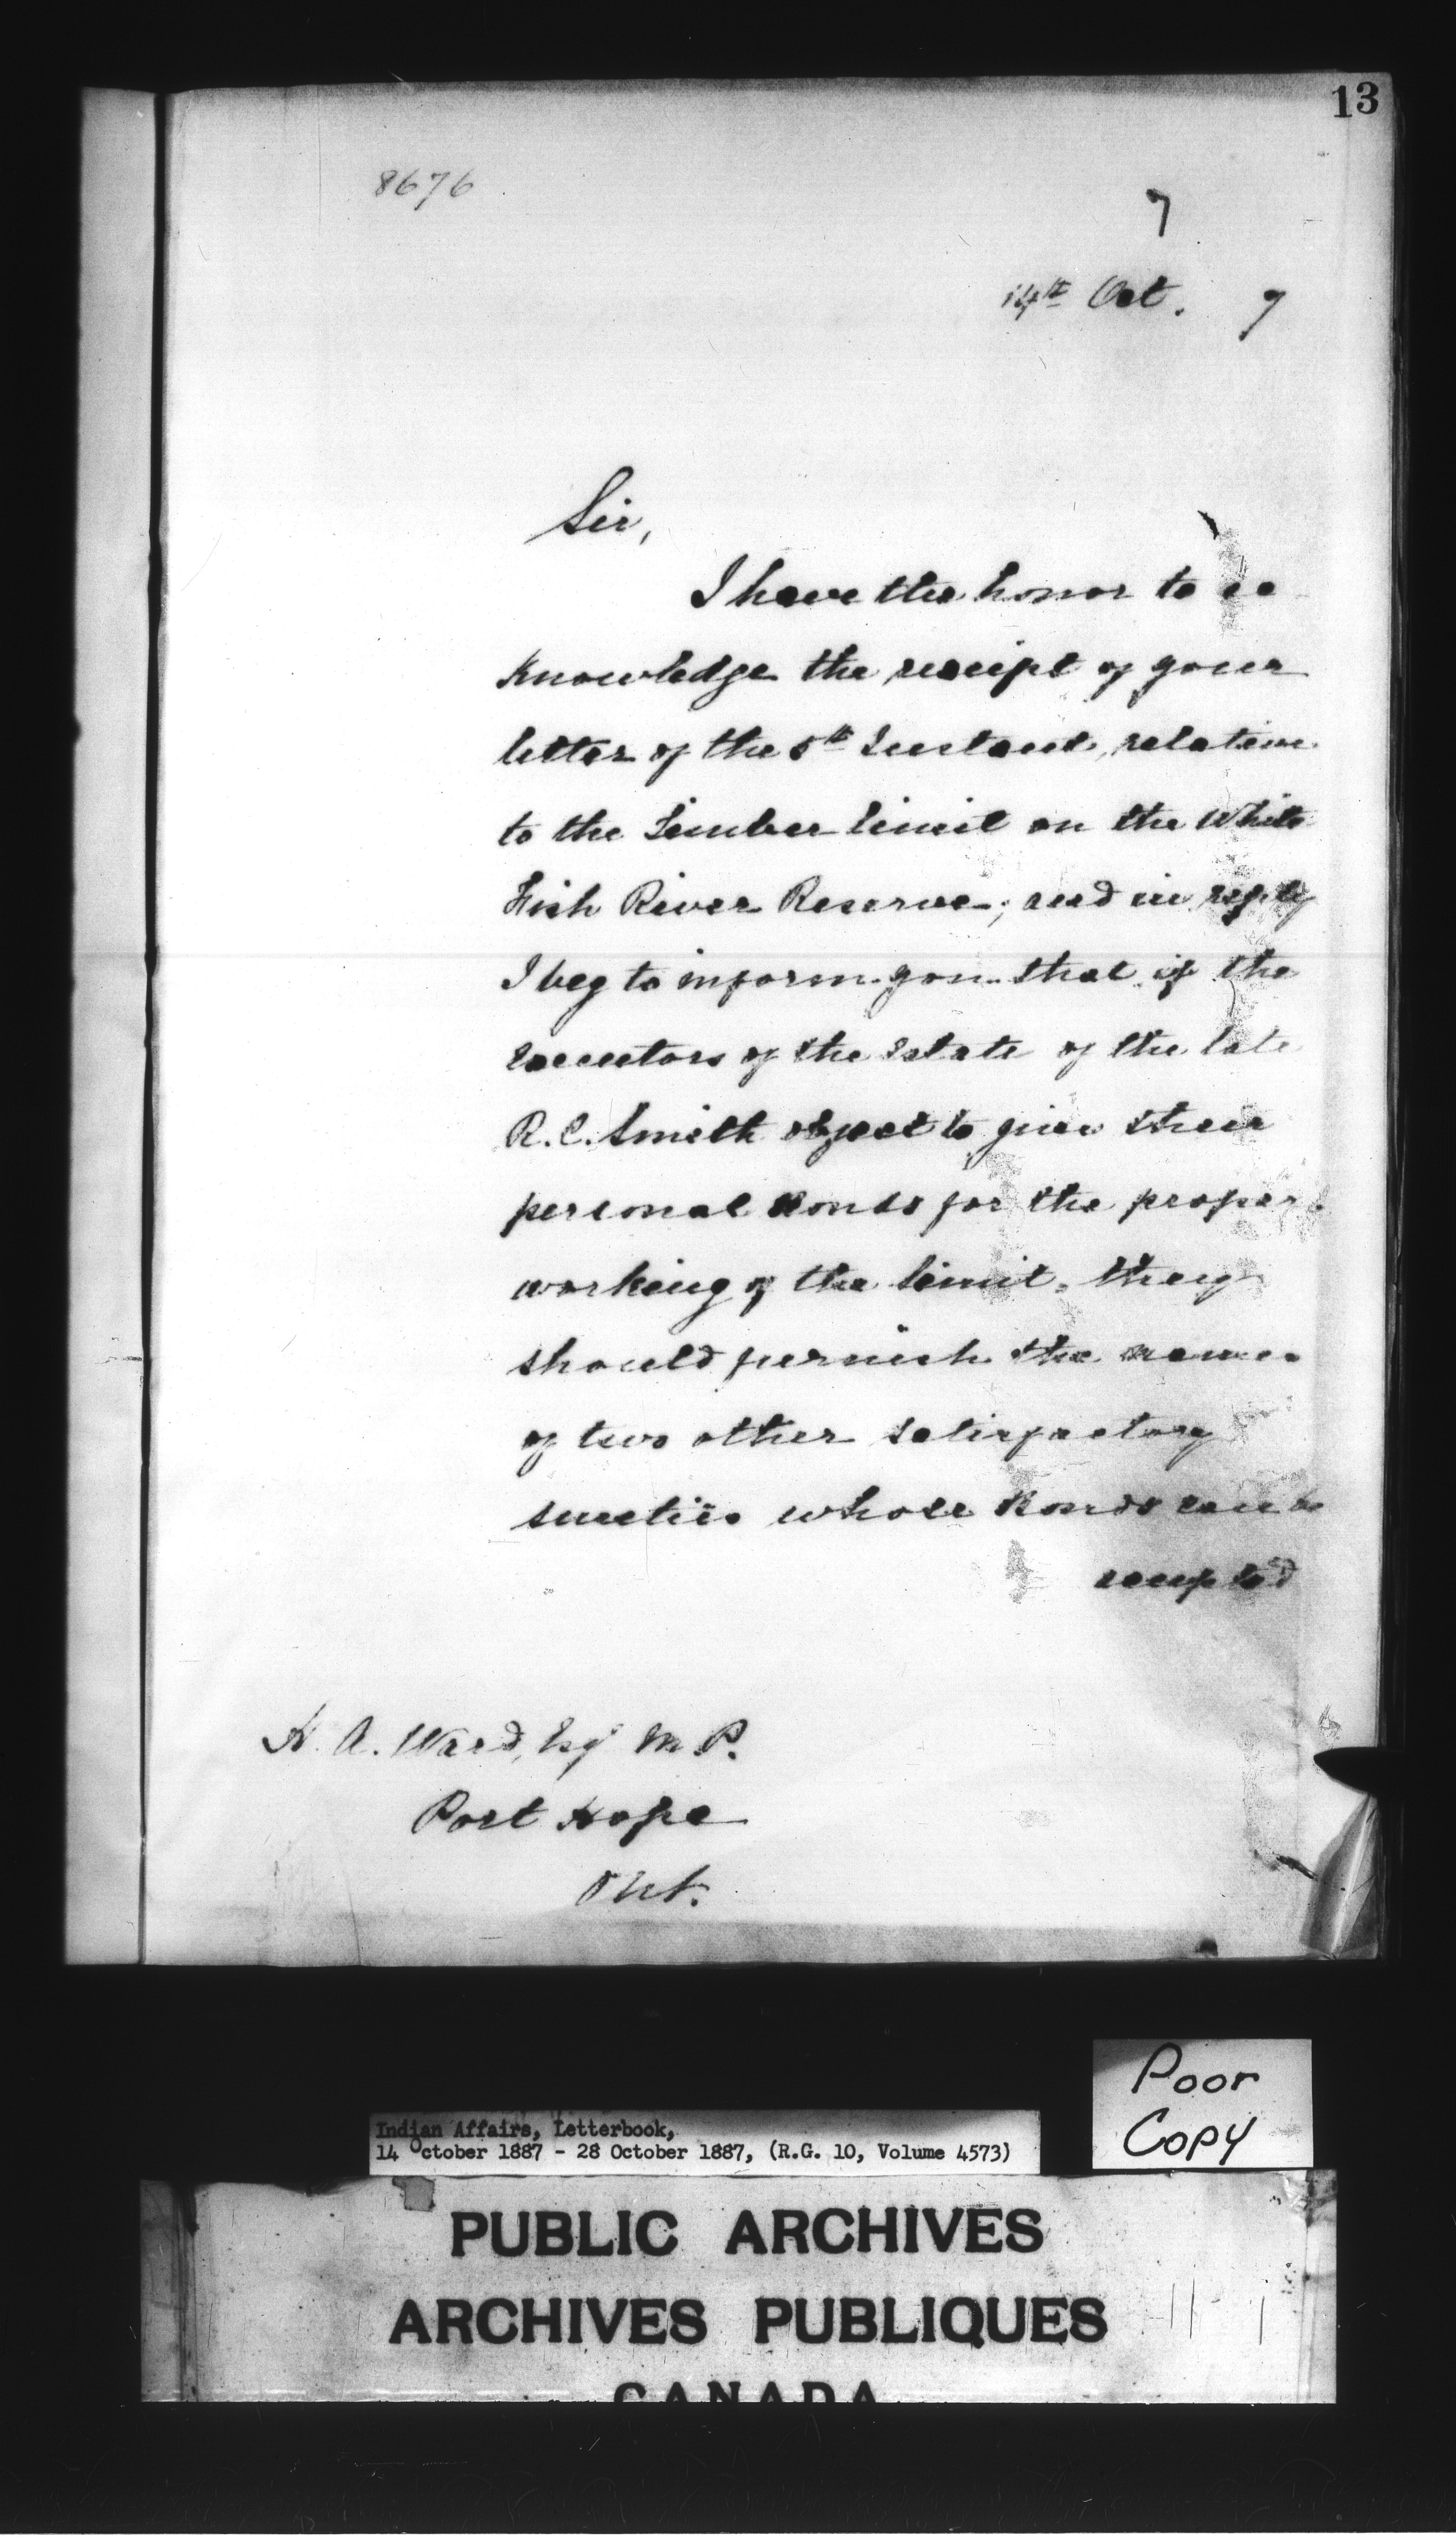 13
8676
7
14th Oct. 7
Sir,
I have the honor to ac
knowledge the receipt of your
letter of the 5th Instant, relative
to the Timber limit on the White
Fish River Reserve; and in reply
I beg to inform you that if the
Executors of the Estate of the late
R. C. Smith object to give their
personal Bonds for the proper
working of the limit, they
should furnish the names
of two other satisfactory
sureties whose Bonds can be
accepted
H. A. Ward, Esq M.P.
Port Hope
Ont.
Poor
Copy
Indian Affairs, Letterbook,
14 October 1887 - 28 October 1887, (R.G. 10, Volume 4573)
PUBLIC ARCHIVES
ARCHIVES PUBLIQUES
CANADA